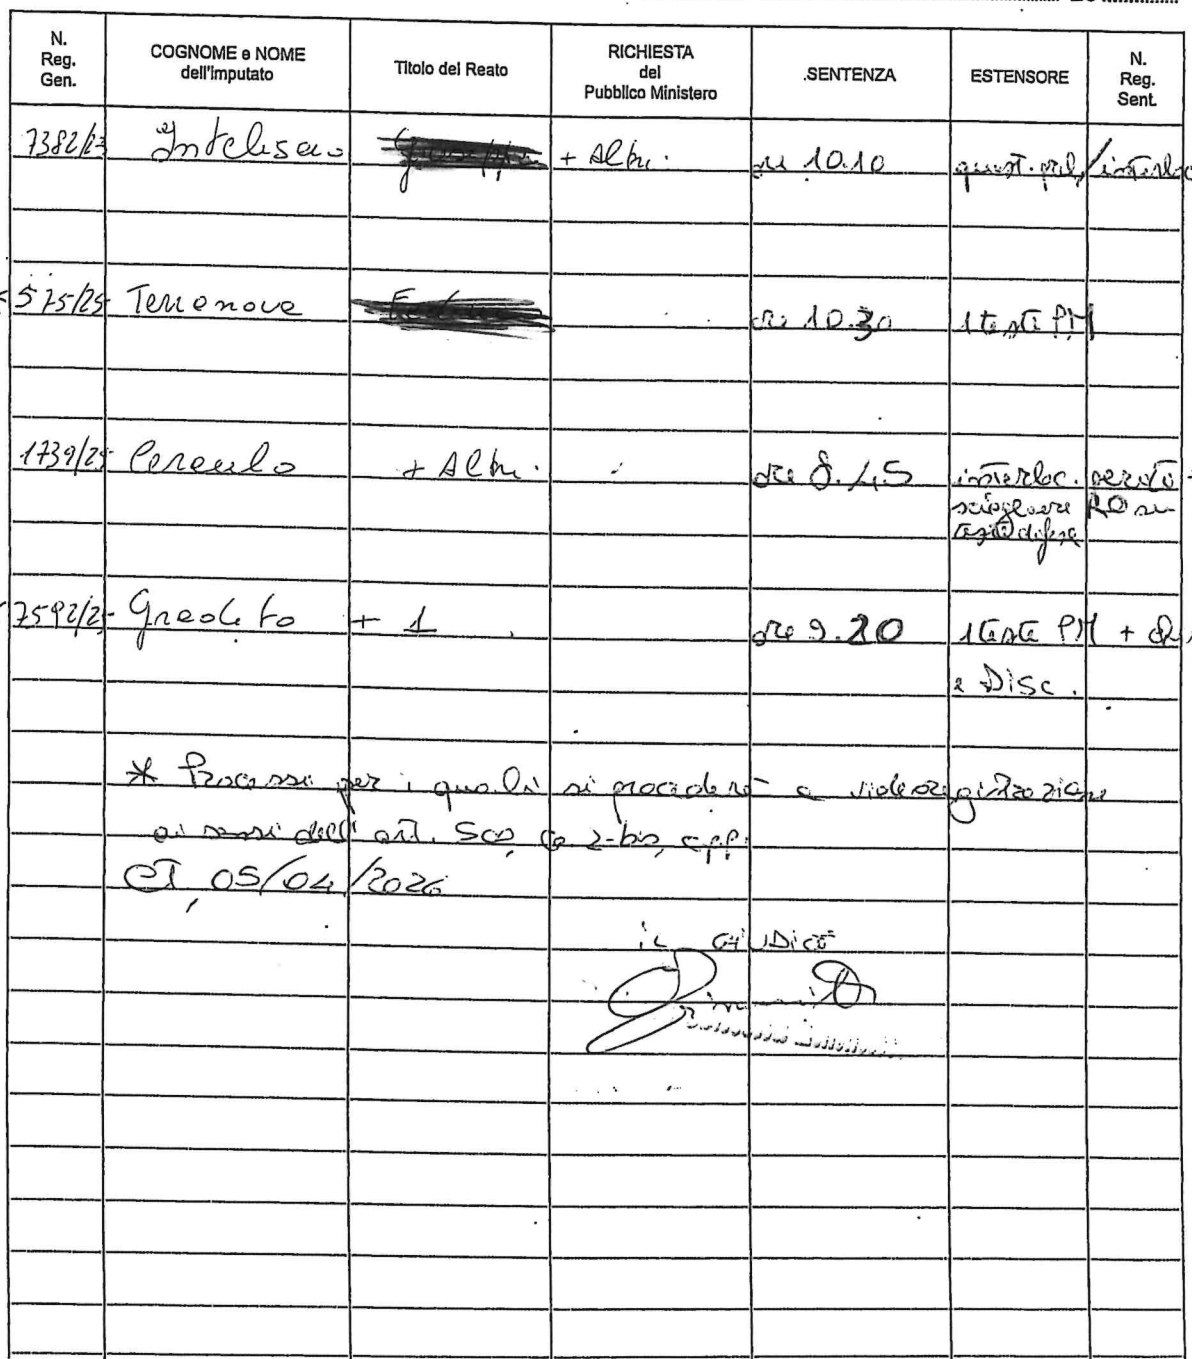 N. Reg. Gen. COGNOME e NOME dell'imputato Titolo del Reato RICHIESTA del Pubblico Ministero SENTENZA ESTENSORE N. Reg. Sent.
7382/23 + Altri. ore 10.10 quest. prel/interloc
575/25 Terranova ore 10.30 1 teste PM
1739/25 + Altri. ore 8.45 interloc.
sciogliere RO su
testi difesa
7592/2 + 1 ore 9.20 1 teste PM +
e Disc.
* Processi per i quali si procederà a videoregistrazione
ai sensi dell'art. 2-bis, cpp.
CT, 05/04/2026
IL GIUDICE